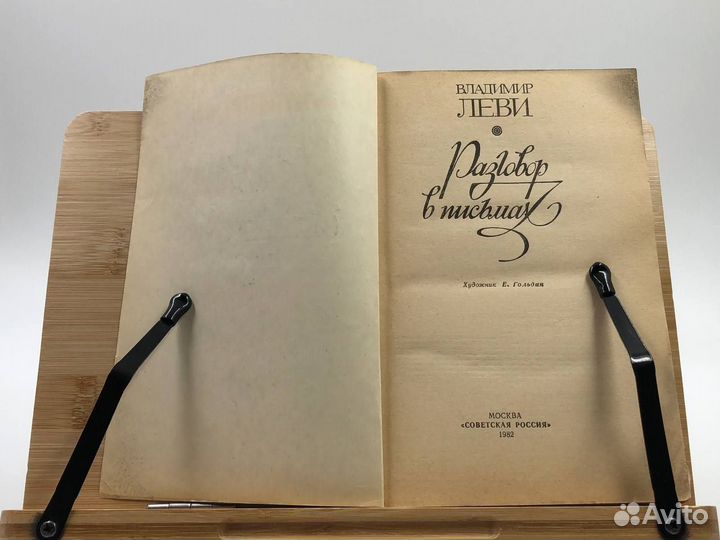 ВЛАДИМИР
ЛЕВИ
Разговор
в письмах
Художник Е. Гольдин
МОСКВА
«СОВЕТСКАЯ РОССИЯ»
1982
Avito